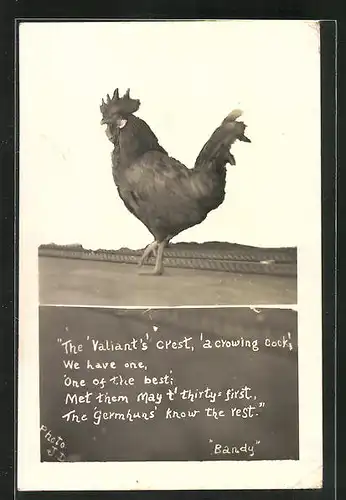 "The 'Valiant's' crest, 'a crowing cock',
We have one,
'One of the best';
Met them May t' thirty-first,
The 'Germhuns' know the rest."
"Bandy"
Photo
J.D.